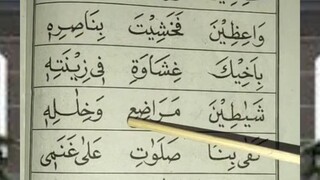 وَاعِظِيْنَ فَخَشِيْتَ بِنَاصِرِهٖ
بِاَخِيْكَ غِشَاوَةً فِيْ زِيْنَتِهٖ
شَيٰطِيْنَ مَرَاضِعَ وَخِلٰلِهٖ
كَفٰى بِنَا صَلَوٰتِ عَلٰى غَنَمِيْ